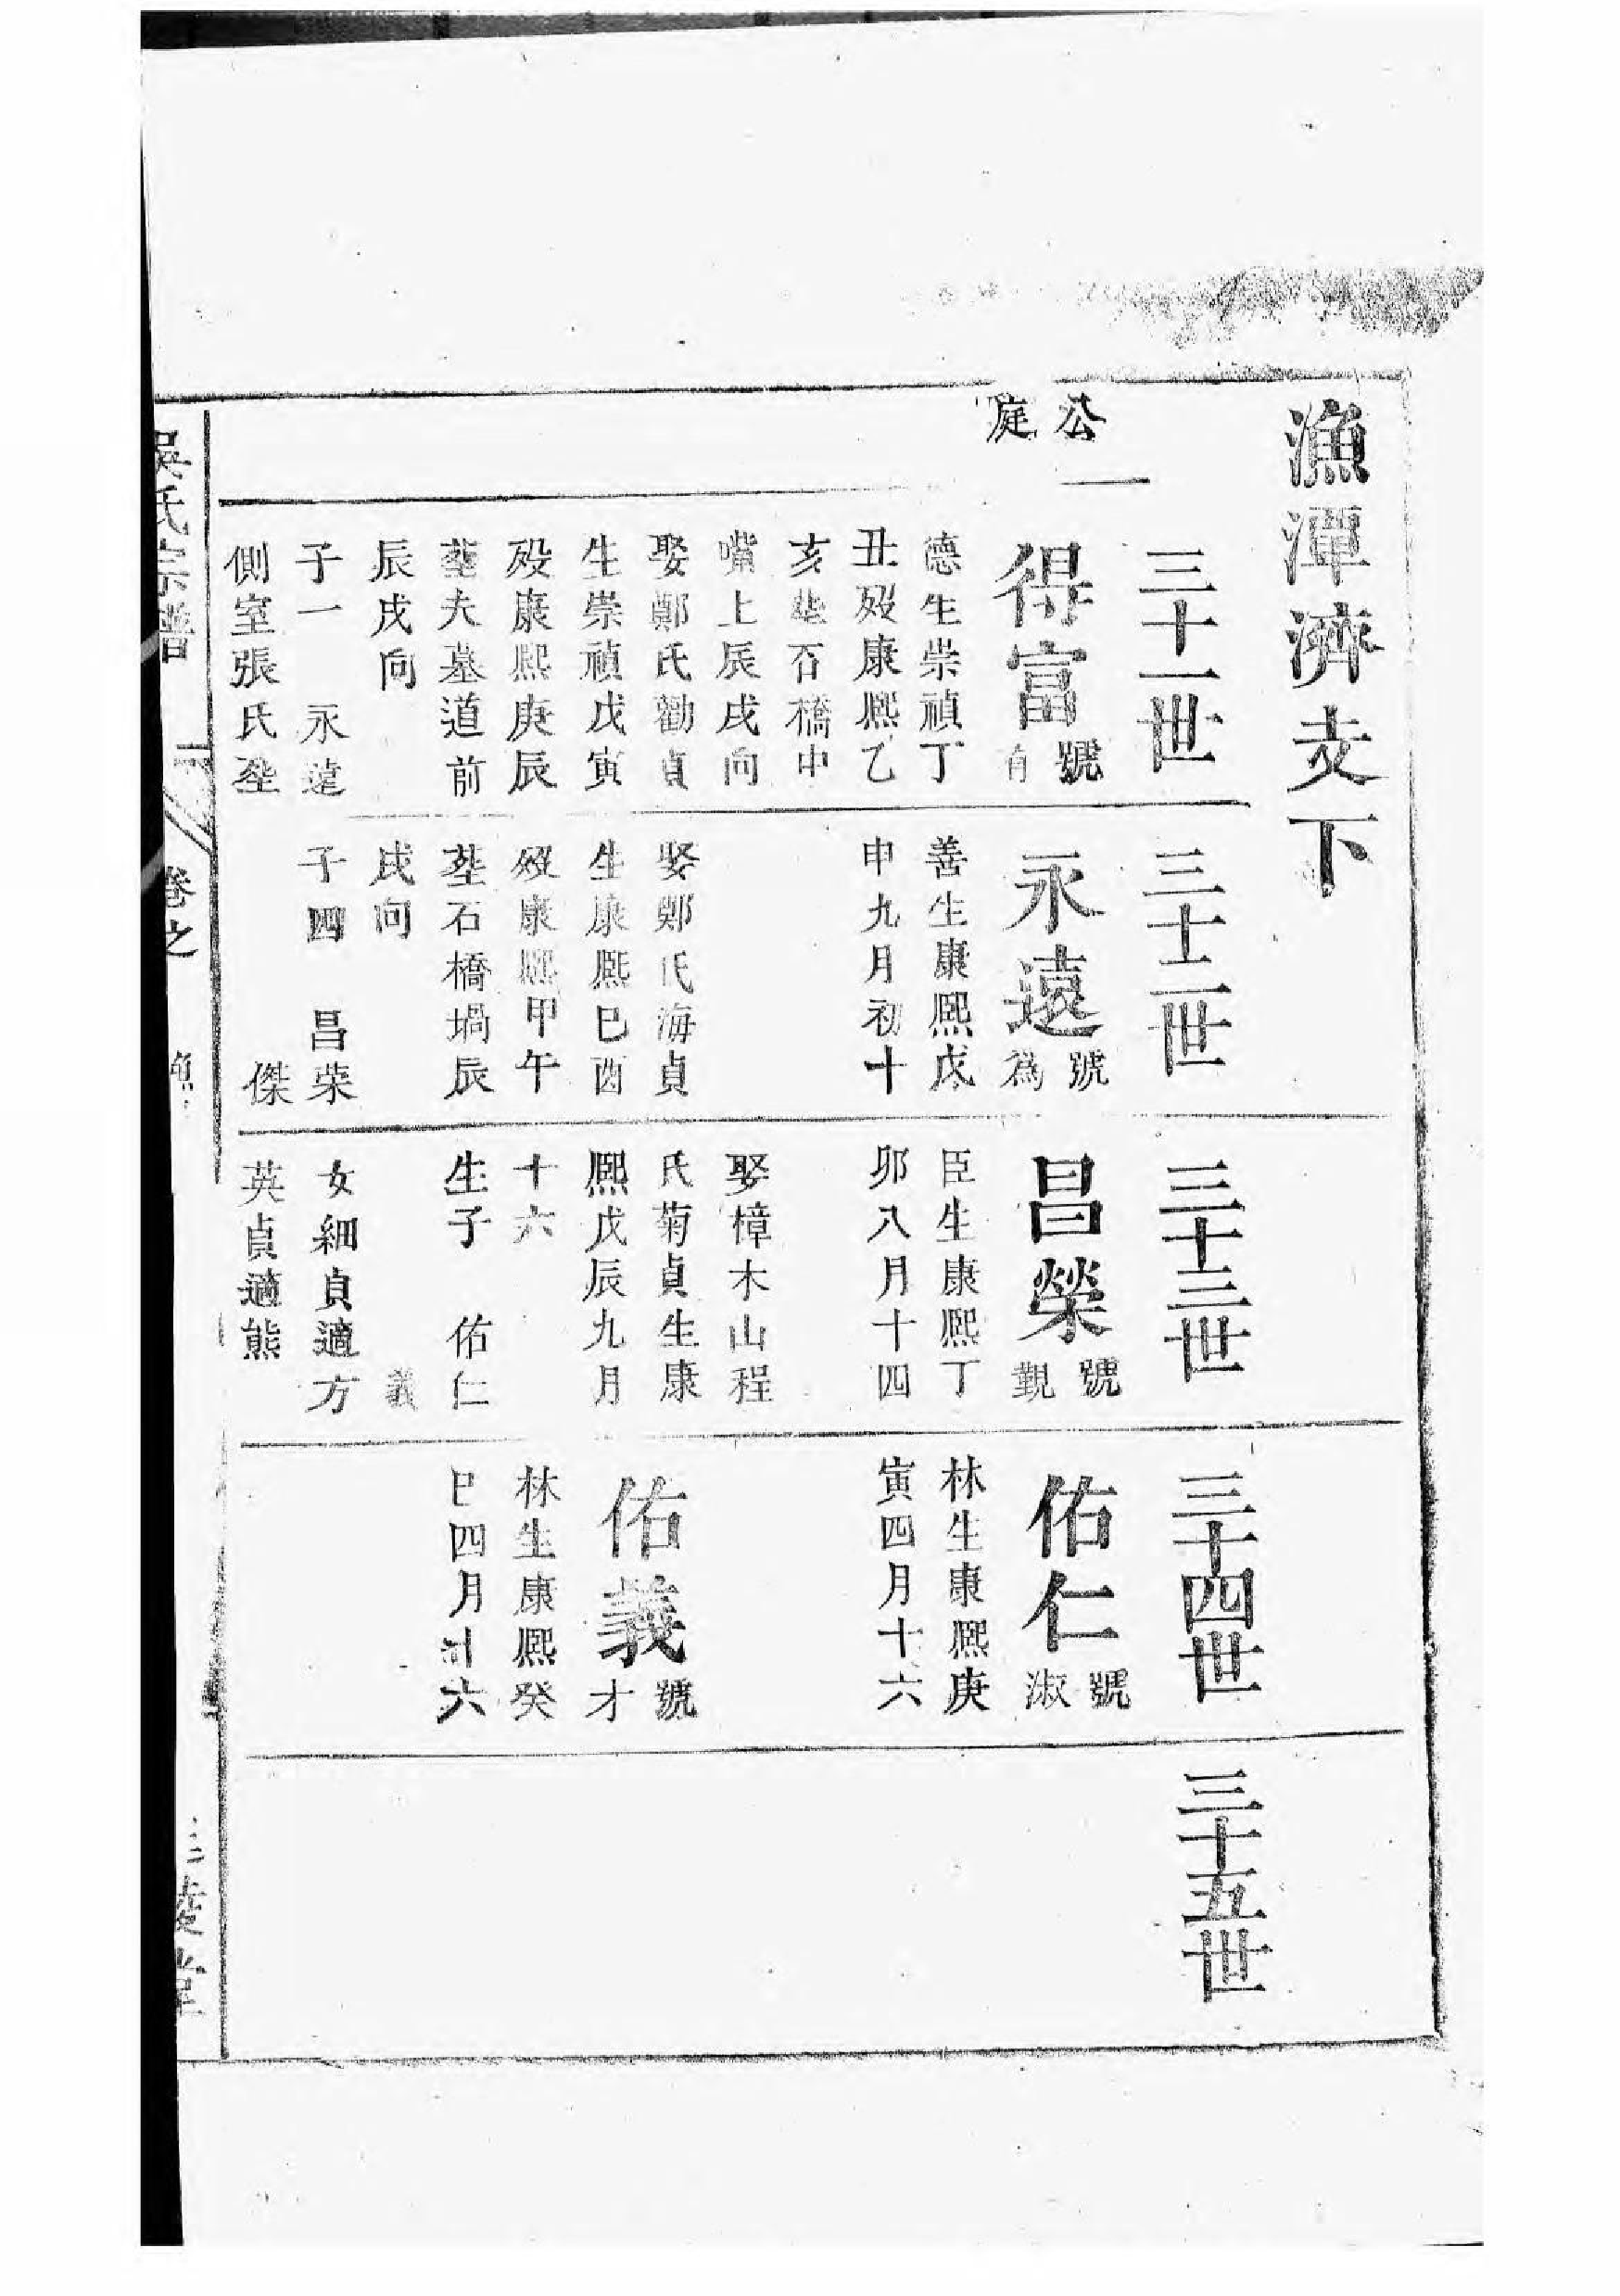 漁潭濟支下
公
庭
三十一世
得富
號
有
德生崇禎丁
丑歿康熙乙
亥塟石橋中
嘴上辰戌向
娶鄭氏勸貞
生崇禎戊寅
殁康熙庚辰
塟夫墓道前
辰戌向
子一 永遠
側室張氏塟
三十二世
永遠
號
為
善生康熙戊
申九月初十
娶鄭氏海貞
生康熙巳酉
殁康熙甲午
塟石橋塆辰
戌向
子四 昌荣
傑
三十三世
昌榮
號
觐
臣生康熙丁
卯八月十四
娶樟木山程
氏菊貞生康
熙戊辰九月
十六
生子 佑仁
義
女細貞適方
英貞適熊
三十四世
佑仁
號
淑
林生康熙庚
寅四月十六
佑義
號
才
林生康熙癸
巳四月廿六
三十五世
吳氏宗譜
卷之